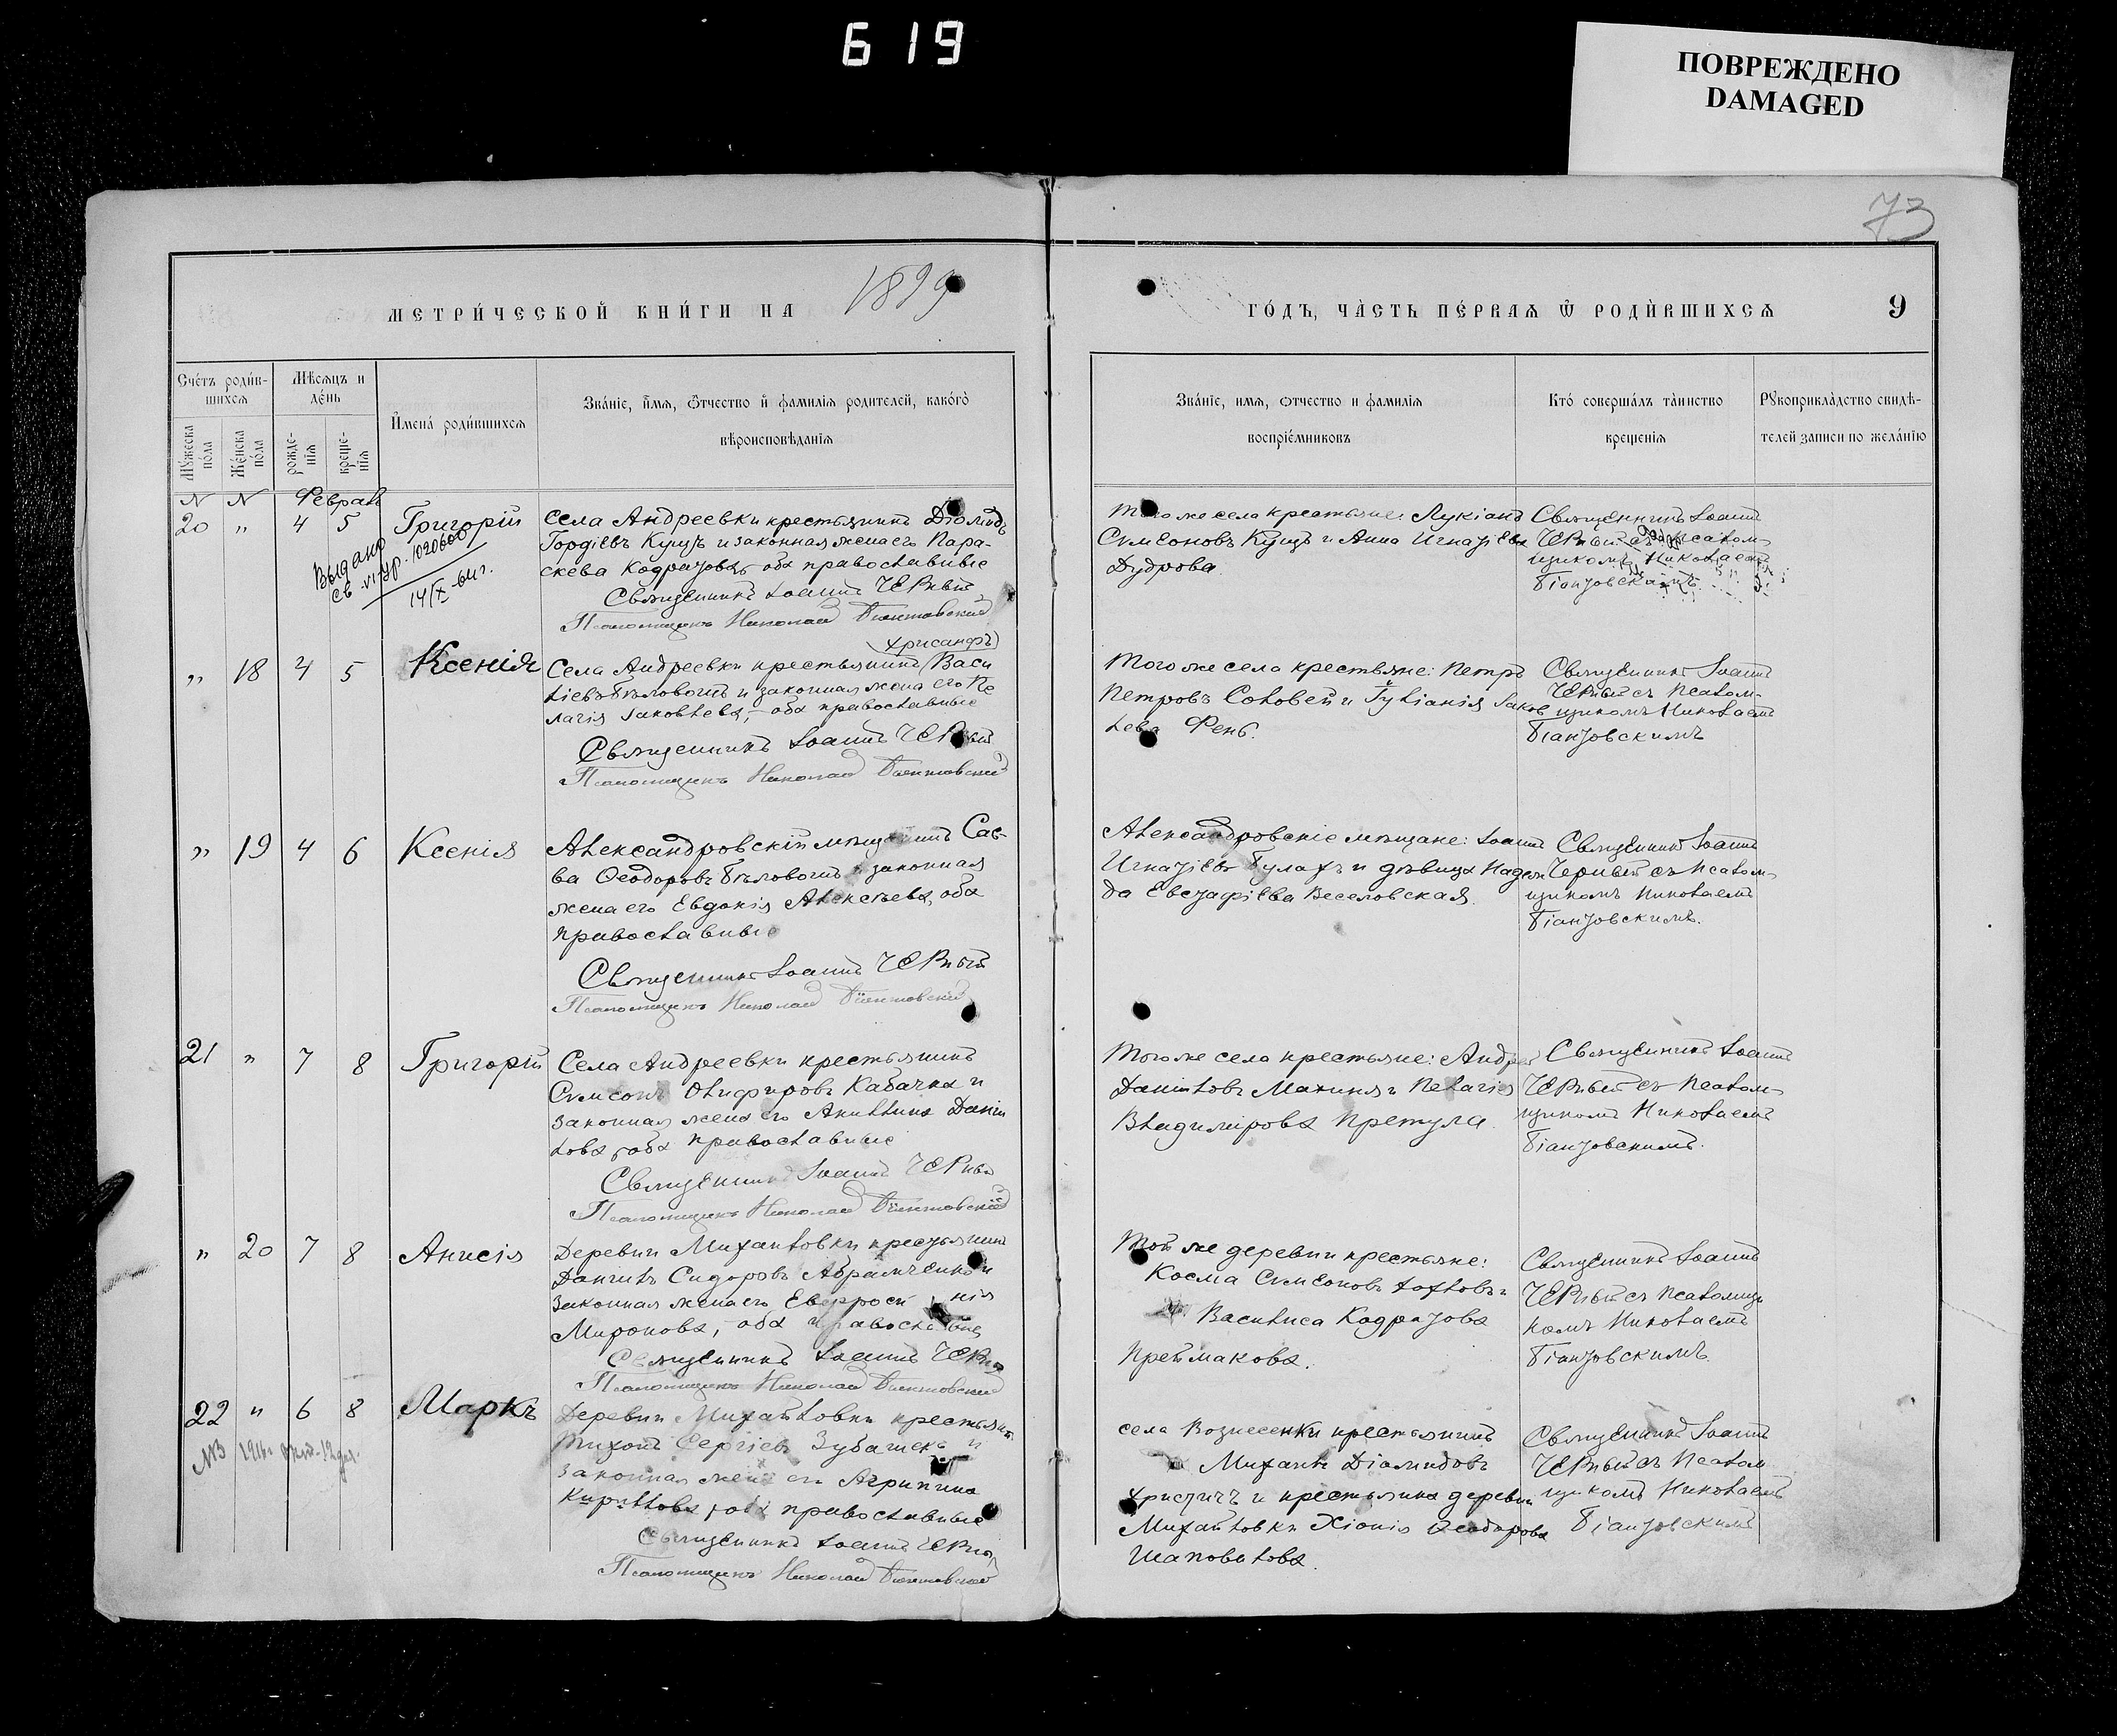 619
ПОВРЕЖДЕНО
DAMAGED
73
МЕТРИ́ЧЕСКОЙ КНИ́ГИ НА 1899
ГО́ДЪ, ЧА́СТЬ ПЕ́РВАѦ Ѿ РОДИ́ВШИХСѦ 9
Сче́тъ роди́в-
шихсѧ
Мѣ́сѧцъ и
де́нь
Му́жеска
по́ла
Же́нска
по́ла
рожде-
нїѧ
креще-
нїѧ
И҆мена̀ роди́вшихсѧ
Зва́нїе, и҆́мѧ, ѻ҆́тчество и҆ фами́лїѧ родителей, како́гѡ
вѣроисповѣ́данїѧ
Зва́нїе, имѧ, ѻтчество и фамилїѧ
воспрїе́мниковъ
Кто́ совершáлъ та́инство
крещенїѧ
Рꙋкоприкла́дство свидѣ-
телей записи по жела́нїю
N N Февраль
20 " 4 5 Григорій
Села Андреевки крестьянинъ Діомидъ
Гордіевъ Куцъ и законная жена его Пара-
скева Кодратова, оба православные
Священникъ Іоаннъ Черный
Псаломщикъ Николай
Выдано
Св. VI ур. 1020600
14/X-61 г.
Того же села крестьяне: Лукіанъ
Симеоновъ Куцъ и Анна Игнатіева
Дудрова
Священникъ Іоаннъ
Черный съ псалом-
щикомъ Николаемъ
" 18 4 5 Ксенія
Хрисанфъ
Села Андреевки крестьянинъ Васи
ліевъ Бѣловолъ и законная жена его Пе
лагія Іаковлева, - оба православные
Священникъ Іоаннъ Черный
Псаломщикъ Николай
Того же села крестьяне: Петръ
Петровъ Соловей и Іуліанія Іаков
лева Фень.
Священникъ Іоаннъ
Черный съ псалом-
щикомъ Николаемъ
" 19 4 6 Ксенія
Александровскій мѣщанинъ Сав-
ва Ѳеодоровъ Бѣловолъ и законная
жена его Евдокія Алексѣева, оба
православные
Священникъ Іоаннъ Черный
Псаломщикъ Николай
Александровскіе мѣщане: Іоаннъ
Игнатіевъ Булахъ и дѣвица Надеж
да Евстафіева Веселовская.
Священникъ Іоаннъ
Черный съ псалом-
щикомъ Николаемъ
21 " 7 8 Григорій
Села Андреевки крестьянинъ
Симеонъ Олифировъ Кабачка и
законная жена его Акилина Даніи
лова, оба православные
Священникъ Іоаннъ Черный
Псаломщикъ Николай
Того же села крестьяне: Андрей
Даніиловъ Махиня и Пелагія
Владимірова Претула.
Священникъ Іоаннъ
Черный съ псалом-
щикомъ Николаемъ
" 20 7 8 Анисія
Деревни Михайловки крестьянинъ
Даніилъ Сидоровъ Абрамченко и
законная жена его Евфросинія
Миронова, - оба православные
Священникъ Іоаннъ Черный
Псаломщикъ Николай
Той же деревни крестьяне:
Косма Симеоновъ и
Василиса Кодратова
Преймакова.
Священникъ Іоаннъ
Черный съ псаломщи
комъ Николаемъ
22 " 6 8 Маркъ
Деревни Михайловки крестьянинъ
Тихонъ Сергіевъ и
законная жена его Агрипина
Кириллова, оба православные
Священникъ Іоаннъ Черный
Псаломщикъ Николай
села Вознесенки крестьянинъ
Михаилъ Діомидовъ
Христичъ и крестьянка деревни
Михайловки Хіонія Ѳеодорова
Шаповалова.
Священникъ Іоаннъ
Черный съ псалом
щикомъ Николаемъ